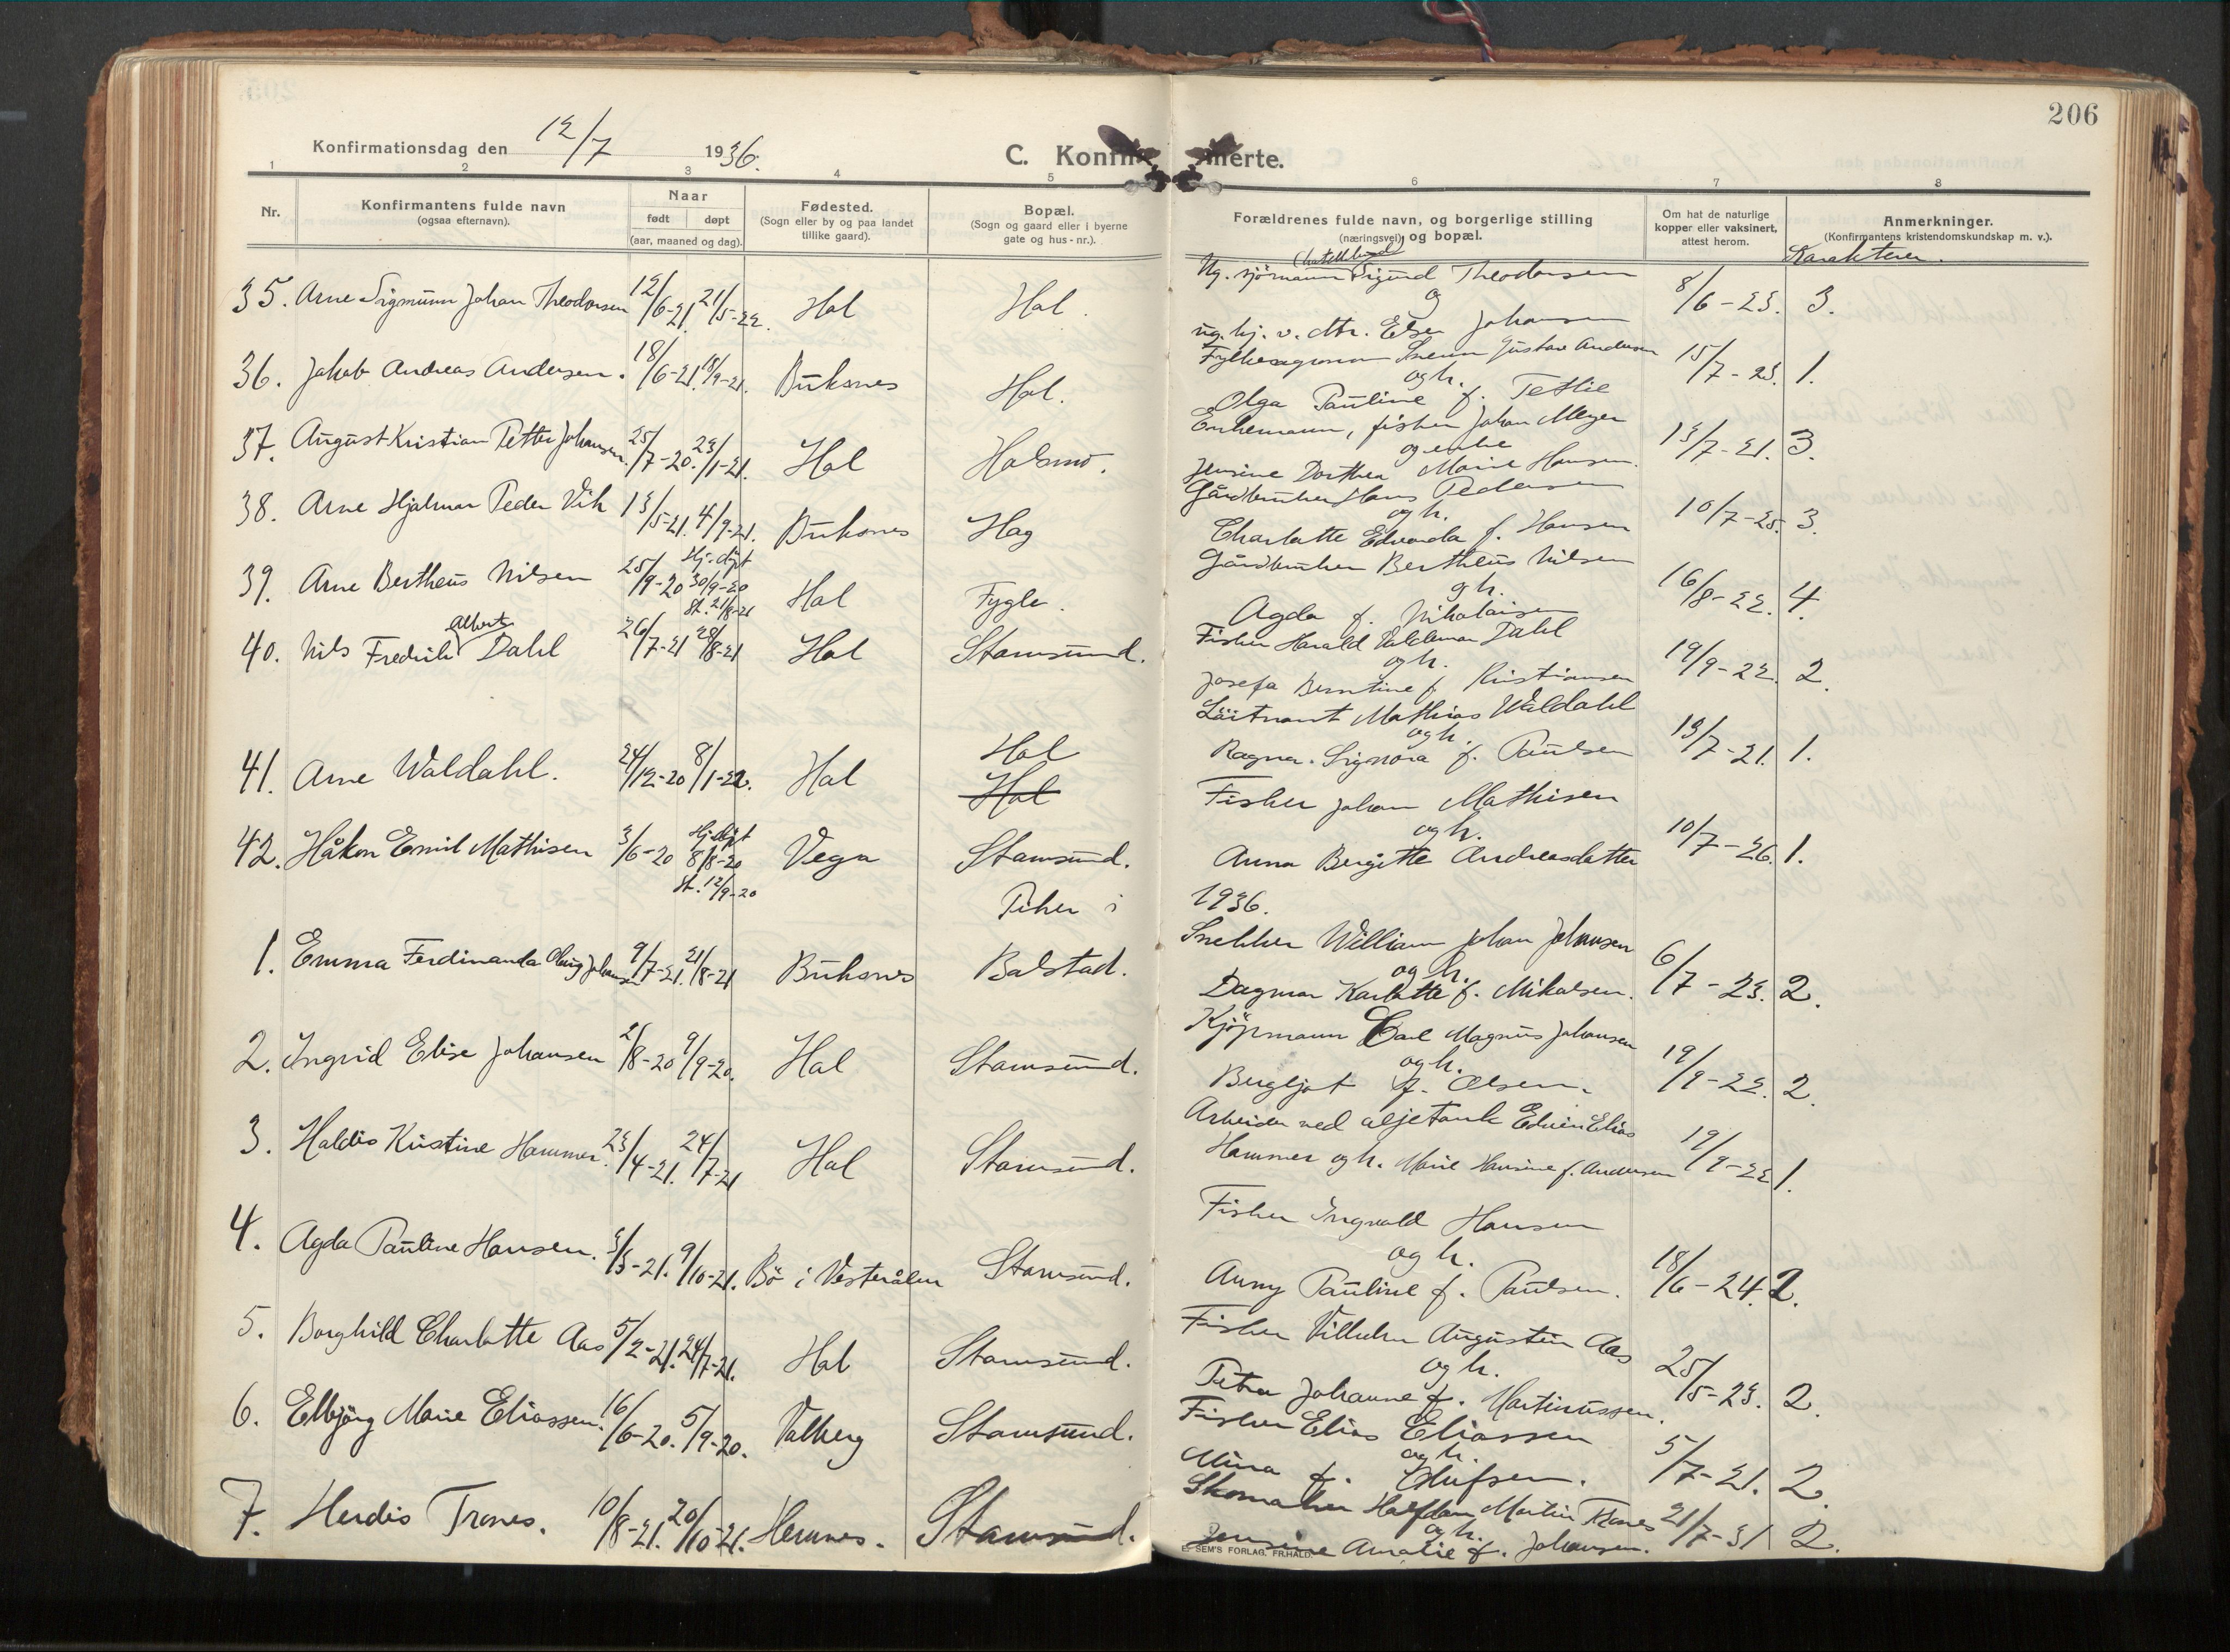 206
Konfirmationsdag den 12/7 1936.
C. Konfirmerte.
1 2 3 4 5 6 7 8
Nr.
Konfirmantens fulde navn
(ogsaa efternavn).
Naar
født døpt
(aar, maaned og dag).
Fødested.
(Sogn eller by og paa landet
tillike gaard).
Bopæl.
(Sogn og gaard eller i byerne
gate og hus-nr.).
Forældrenes fulde navn, og borgerlige stilling
(næringsvei) og bopæl.
Om hat de naturlige
kopper eller vaksinert,
attest herom.
Anmerkninger.
(Konfirmantens kristendomskundskap m. v.).
Karakterer.
35. Arne Sigmunn Johan Theodorsen 12/6-21. 21/5-22. Hol Hol. Ug. sjömann Sigurd Theodorsen
og
ug. hj. v. mor. Elsa Johansen 8/6-23. 3.
36. Jakob Andreas Andersen. 18/6-21. 18/9-21. Buksnes Hol. Fylkesagronom Gustav Andersen
og h.
Olga Pauline f. Tetlie 15/7-23. 1.
37. August Kristian Petter Johansen. 25/7-20. 23/1-21. Hol Holsmo. Enkemann, fisker Johan Meyer
og enke
Jensine Dorthea Marie Hansen. 13/7-21. 3.
38. Arne Hjalmar Peder Vik 13/5-21. 4/9-21. Buksnes Hag Gårdbruker Hans Pedersen
og h.
Charlotte Edvarda f. Hansen 10/7-25. 3.
39. Arne Bertheus Nilsen 25/9-20 Hj. döpt
30/9-20
St. 21/8-21 Hol Fygle. Gårdbruker Bertheus Nilsen
og h.
Agda f. Nikolaisen 16/8-22. 4.
40. Nils Fredrik Albert Dahl 26/7-21 28/8-21 Hol Stamsund. Fisker Harald Valdemar Dahl
og h.
Josefa Berntine f. Kristiansen 19/9-22. 2.
41. Arne Waldahl. 24/12-20 8/1-22. Hol Hol
Hol
Löitnant Mathias Waldahl
og h.
Ragna Signora f. Paulsen 13/7-21. 1.
42. Håkon Emil Mathisen 3/6-20 Hj. döpt
8/8-20
St. 12/9-20 Vega Stamsund. Fisker Johan Mathisen
og h.
Anna Bergitte Andreasdatter 10/7-26. 1.
Piker i 1936.
1. Emma Ferdinanda Johansen 9/7-21. 21/8-21 Buksnes Balstad. Snekker William Johan Johansen
og h.
Dagmar Karlotte f. Mikalsen. 6/7-23. 2.
2. Ingrid Elise Johansen 2/8-20 9/9-20. Hol Stamsund. Kjöpmann Carl Magnus Johansen
og h.
Bergljot f. Olsen. 19/9-22. 2.
3. Haldis Kristine Hammer. 23/4-21. 24/7-21 Hol Stamsund. Arbeider ved oljetank Edvin Elias
Hammer og h. Marie Hansine f. Andersen 19/9-22 1.
4. Agda Pauline Hansen. 3/3-21. 9/10-21. Bö i Vesterålen Stamsund. Fisker Ingvald Hansen
og h.
Anny Pauline f. Paulsen. 18/6-24. 2.
5. Borghild Charlotte Aas 5/2-21. 24/7-21. Hol Stamsund. Fisker Vilhelm Augustin Aas
og h.
Petra Johanne f. Martinussen. 25/5-23. 2.
6. Elbjörg Marie Eliassen. 16/6-20. 5/9-20. Valberg Stamsund. Fisker Elias Eliassen
og h.
Mina f. Olufsen. 5/7-21. 2.
7. Herdis Trones. 10/8-21. 20/10-21. Hemnes. Stamsund. Skomaker Halfdan Martin Trones
og h.
Jensine Amalie f. Johansen. 21/7-31 2.
E. SEM'S FORLAG. FR.HALD.